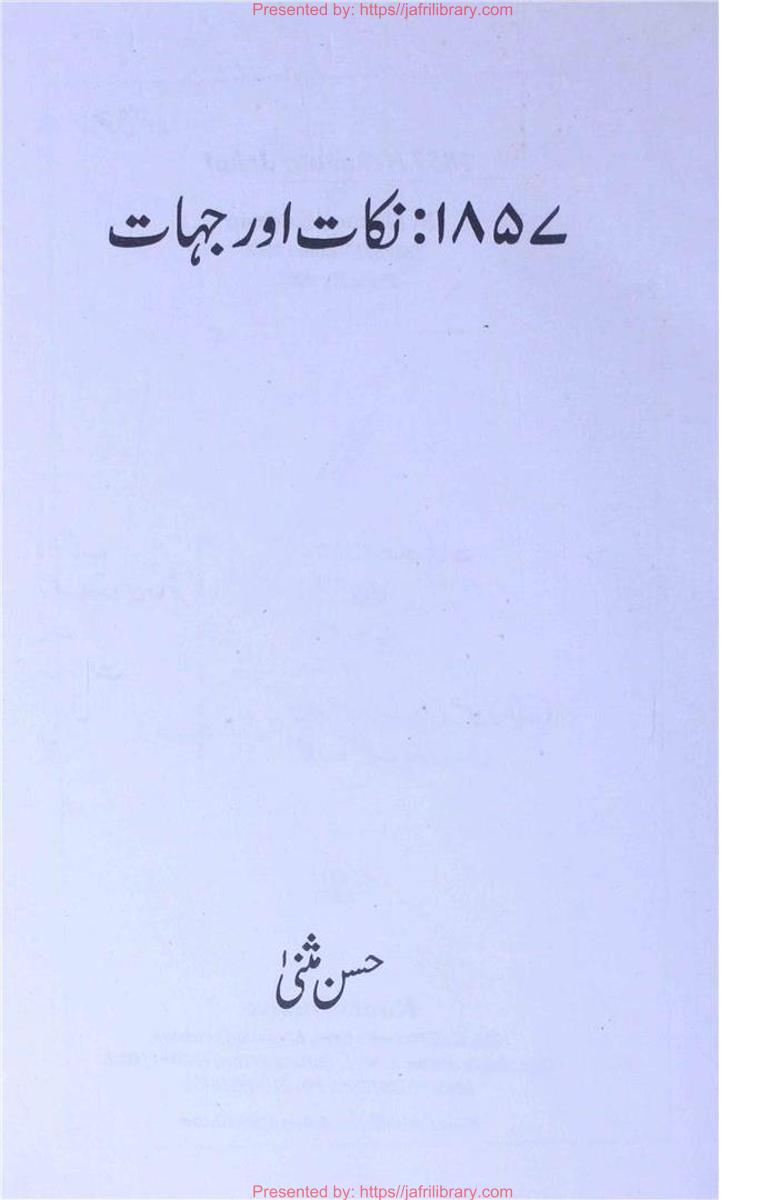 Presented by: https://jafrilibrary.com
۱۸۵۷: نکات اور جہات
حسن مثنیٰ
Presented by: https://jafrilibrary.com